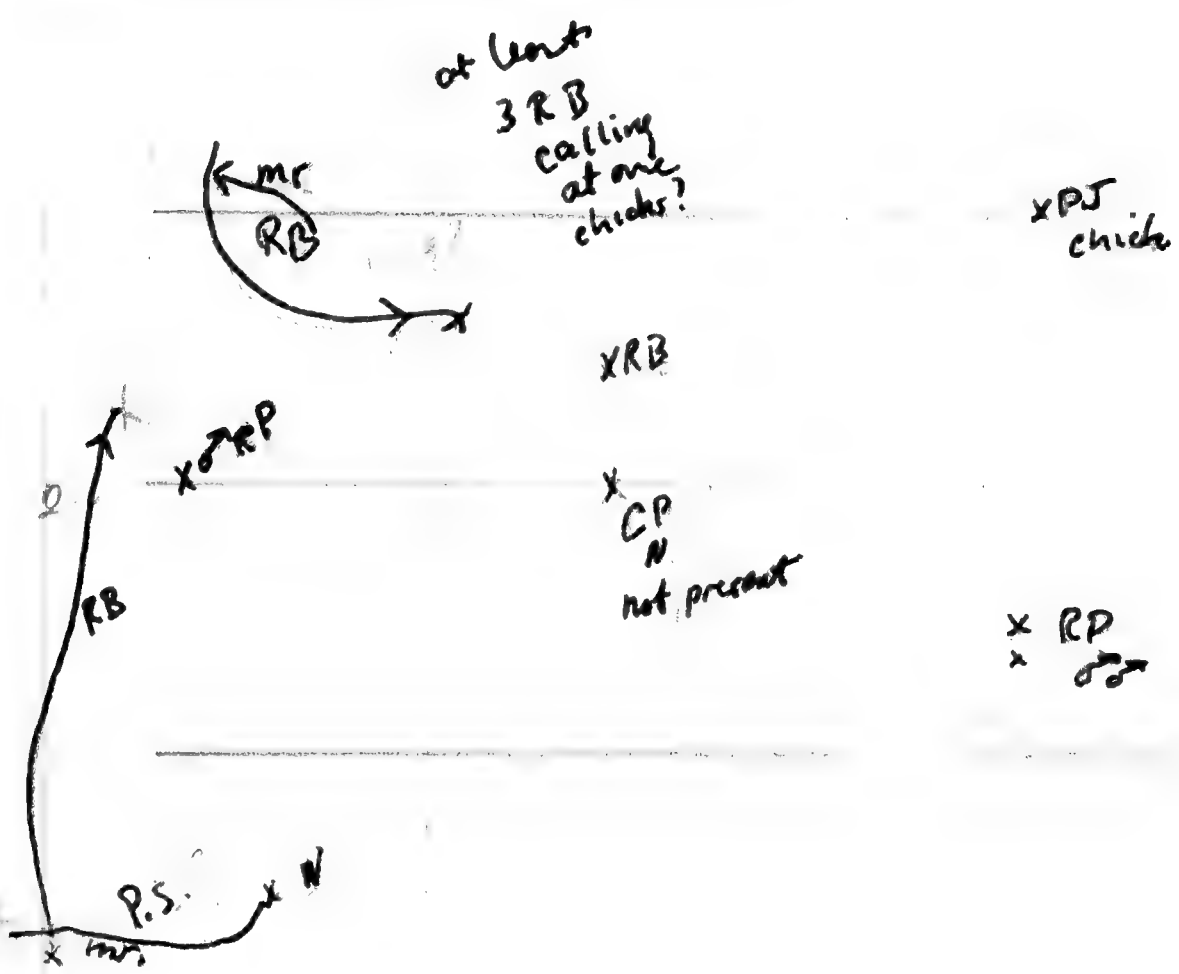 at least
3 RB
calling
at one
chicks?
mr
RB
x PJ
chick
x RB
x ♂ RP
x
CP
N
not present
RB
x RP
x ♂♂
P.S.
x N
x mr.